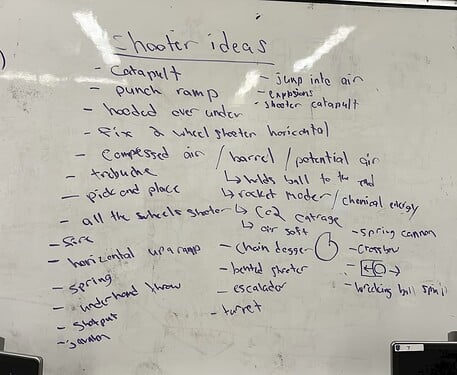 Shooter ideas
- Catapult
- punch ramp
- hooded over under
- fix 2 wheel shooter horizontal
- Compressed air / barrel / potential air
- pick and place
- all the wheels shooter
- horizontal up a ramp
- spring
- underhand throw
- shotput
- jump into air
- explosions
- shooter catapult
↳ holds ball to the
↳ rocket / chemical energy
↳ Co2
↳ air soft
- Chain
- shooter
- escalador
- turret
- spring cannon
- Crossbow
- ball